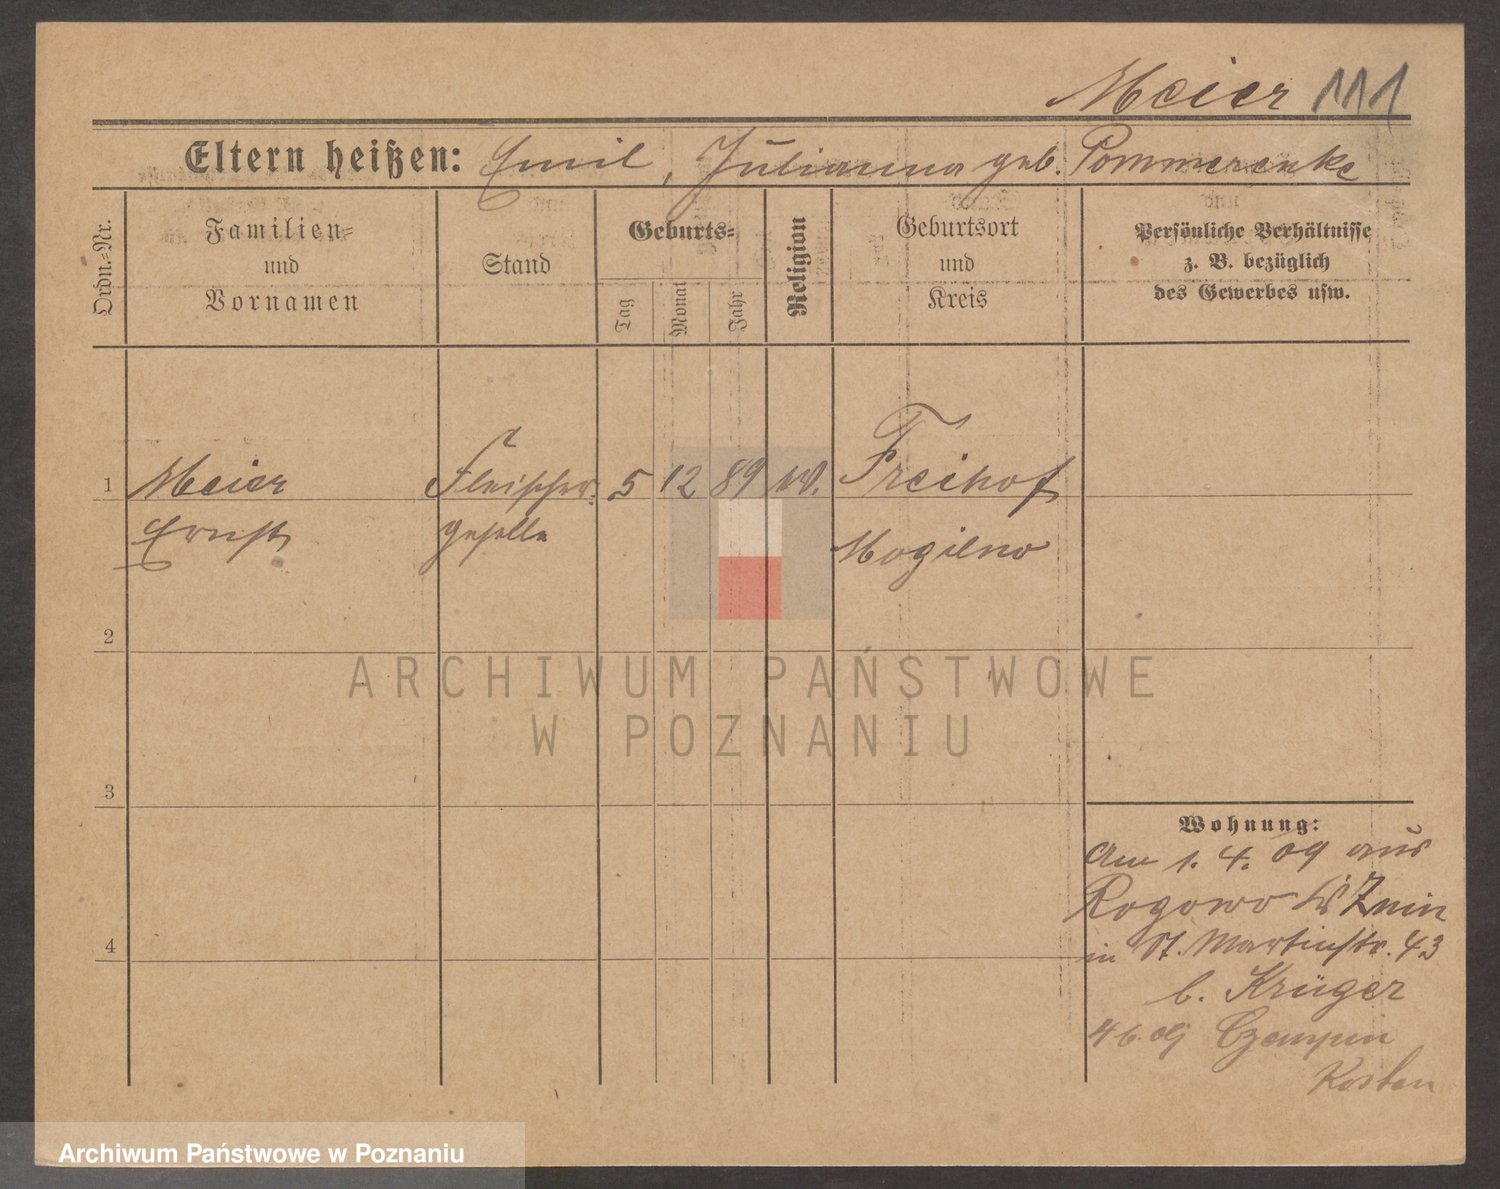 Meier 111
Eltern heißen: Emil, Julianna geb. Pommerenke
Ordn.-Nr.
Familien-
und
Vornamen
Stand
Geburts-
Tag
Monat
Jahr
Religion
Geburtsort
und
Kreis
Persönliche Verhältnisse
z. B. bezüglich
des Gewerbes usw.
1 Meier Fleischer- 5 12 89 Freihof
Ernst geselle Mogilno
2
3
4
Wohnung:
Am 1. 4. 09 aus
Rogowo Znin
in St. Martinstr. 43
b. Krüger
Czempin
Kosten
ARCHIWUM PAŃSTWOWE
W POZNANIU
Archiwum Państwowe w Poznaniu